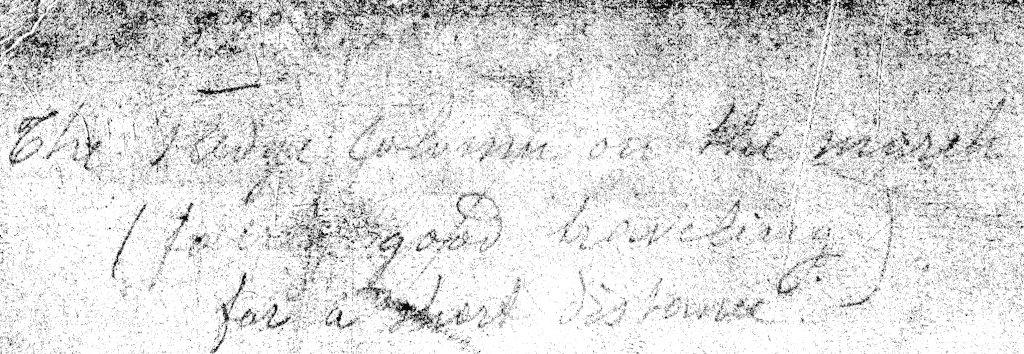 The Ladue Column on the march
(fairly good traveling)
for a short distance